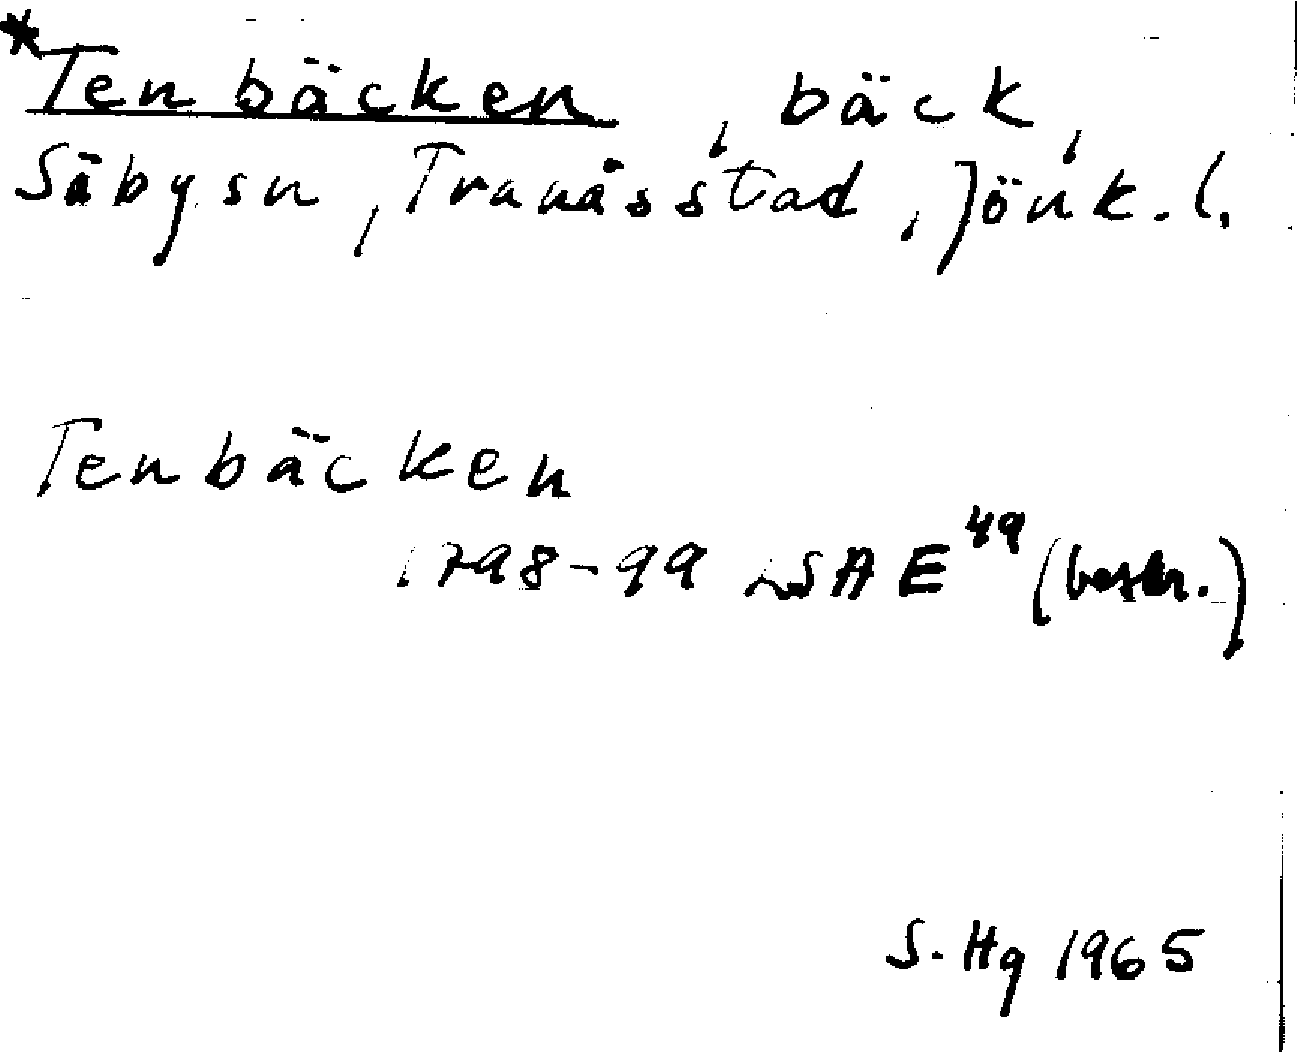 *Tenbäcken, bäck,
Säby sn, Tranås stad, Jönk. l.
Tenbäcken
1798-99 LSA E49 (beskr.)
S. Hg 1965